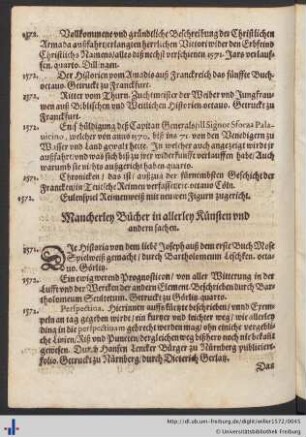 1572. Vollkommene vnd gründtliche Beschreibung der Christlichen
Armada außfahrt erlangten herrlichen Victori wider den Erbfeind
Christliches Namens/ alles deß nechst verschienen 1571. Jars verlauf-
fen. quarto. Dilingen.
1572. Der Historien vom Amadis auß Franckreich das fünffte Buch.
octauo. Getruckt zu Franckfurt.
1572. Ritter vom Thurn. Zuchtmeister der Weiber vnd Jungfrau-
wen auß Biblischen vnd Weltlichen Historien. octauo. Getruckt zu
Franckfurt.
des Capitan General Signor Sforza Pala-
uicino, welcher von anno 1570. biß ins 71. von den Venedigern zu
Wasser vnd Land gewalt hette. In welcher auch angezeigt wird
außfahrt/ vnd was sich biß zu wider verlauffen habe/ Auch
warumb sie nichts außgericht haben. quarto.
1571. Chronicken/ das ist/ außzug der fürnembsten Geschicht der
Francken in Teutsche Reimen verfasset. octauo Cöln.
1572. Eulenspiel Reimenweiß mit newen Figurn zugericht.
Mancherley Bücher in allerley Künsten vnd
andern sachen.
1571. Die Historia von dem liebē Joseph auß dem erste Buch Mose
Spielweiß gemacht/ durch Bartholomeum Leschken. octa-
uo. Görlitz.
1572. Ein ewig werend Prognosticon/ von aller Witterung in der
Lufft vnd der Wercken der andern Element. Beschrieben durch Bar-
tholomeum Scultetum. Getruckt zu Görlitz. quarto.
1572. Perspectiua. Hierinnen auffs kürtzte beschrieben/ vnnd Exem-
peln an tag gegeben wirdt/ ein kurtzer vnd leichter weg/ wie allerley
ding in die perspectiuam gebracht werden mag/ ohn einiche vergebli-
che Linien, Riß vnd Puncten dergleichen weg bißhero noch nie bekant
gewesen. Durch Hansen Lencker Bürger zu Nürnberg publiciert.
folio. Getruckt zu Nürnberg/ durch Dieterich Gerlatz.
Das
http://dl.ub.uni-freiburg.de/diglit/willer1572/0065
© Universitätsbibliothek Freiburg